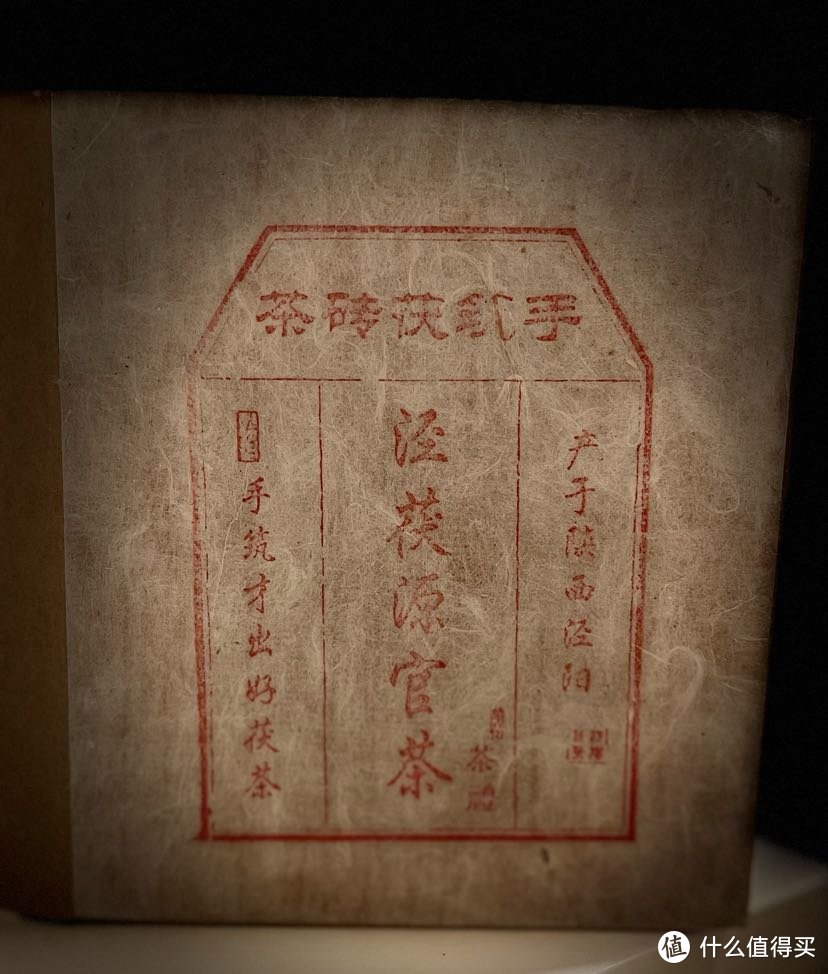 手筑茯砖茶
产于陕西泾阳
泾茯源官茶
茶
手筑才出好茯茶
值 什么值得买